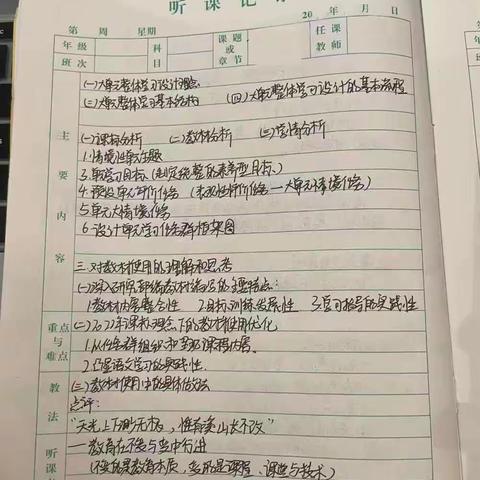 听课记
第 周 星期 20 年 月 日
年级 科 课题 任课
班次 目 或 教师
章节
(一)大单元整体学习设计理念
(三)大单元整体学习基本结构 (四)大单元整体学习设计的基本流程
主 (一)课标分析 (二)教材分析 (三)学情分析
1.情境性单元主题
要 3.单元学习目标(制定统整的素养型目标)
4.预设单元评价任务(表现性评价任务—大单元情境任务)
内 5.单元大情境任务
6.设计单元学习任务群框架图
容 三、对教材使用的理解和思考
(一)深入研究部编教材编写的主要特点:
1.教材内容整合性 2.目标训练发展性 3.复习指导的实践性
重点 (二)2022年课标理念下的教材使用优化
与 1.从任务群组织和
难点 2.凸显语文学习的实践性.
教 (三)教材使用中的具体做法
点评:
法 “天光上下测无极,惟有奚山太不改”
—教育在不变与变中行进
听 (不变的是教育本质,变的是课程、课堂与技术)
课